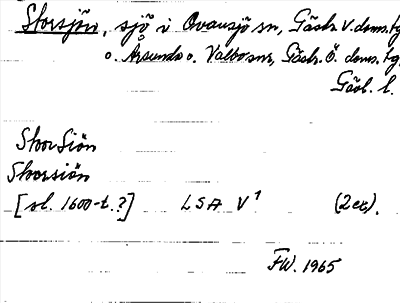 Storsjön, sjö i Ovansjö sn, Gästr. V. doms. tg.
o. Årsunda o. Valbo snr, Gästr. Ö. doms. tg.
Gävl. l.
StoorSiön
Stoorsiön
[sl. 1600-t.?] LSA V¹ (2 ex).
FW. 1965